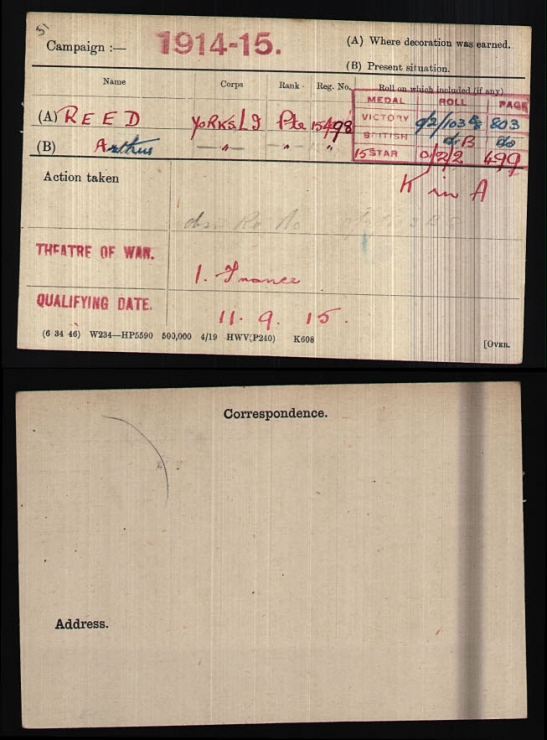 51
Campaign :— 1914-15.
(A) Where decoration was earned.
(B) Present situation.
Name Corps Rank Reg. No. Roll on which included (if any)
MEDAL ROLL PAGE
(A) REED YORKS LI Pte 15498
VICTORY 803
(B) Arthur — " — " "
BRITISH do B do
15 STAR 499
Action taken
K in A
THEATRE OF WAR.
1. France
QUALIFYING DATE.
11. 9. 15.
(6 34 46) W234—HP5590 500,000 4/19 HWV(P240) K608
[OVER.
Correspondence.
Address.